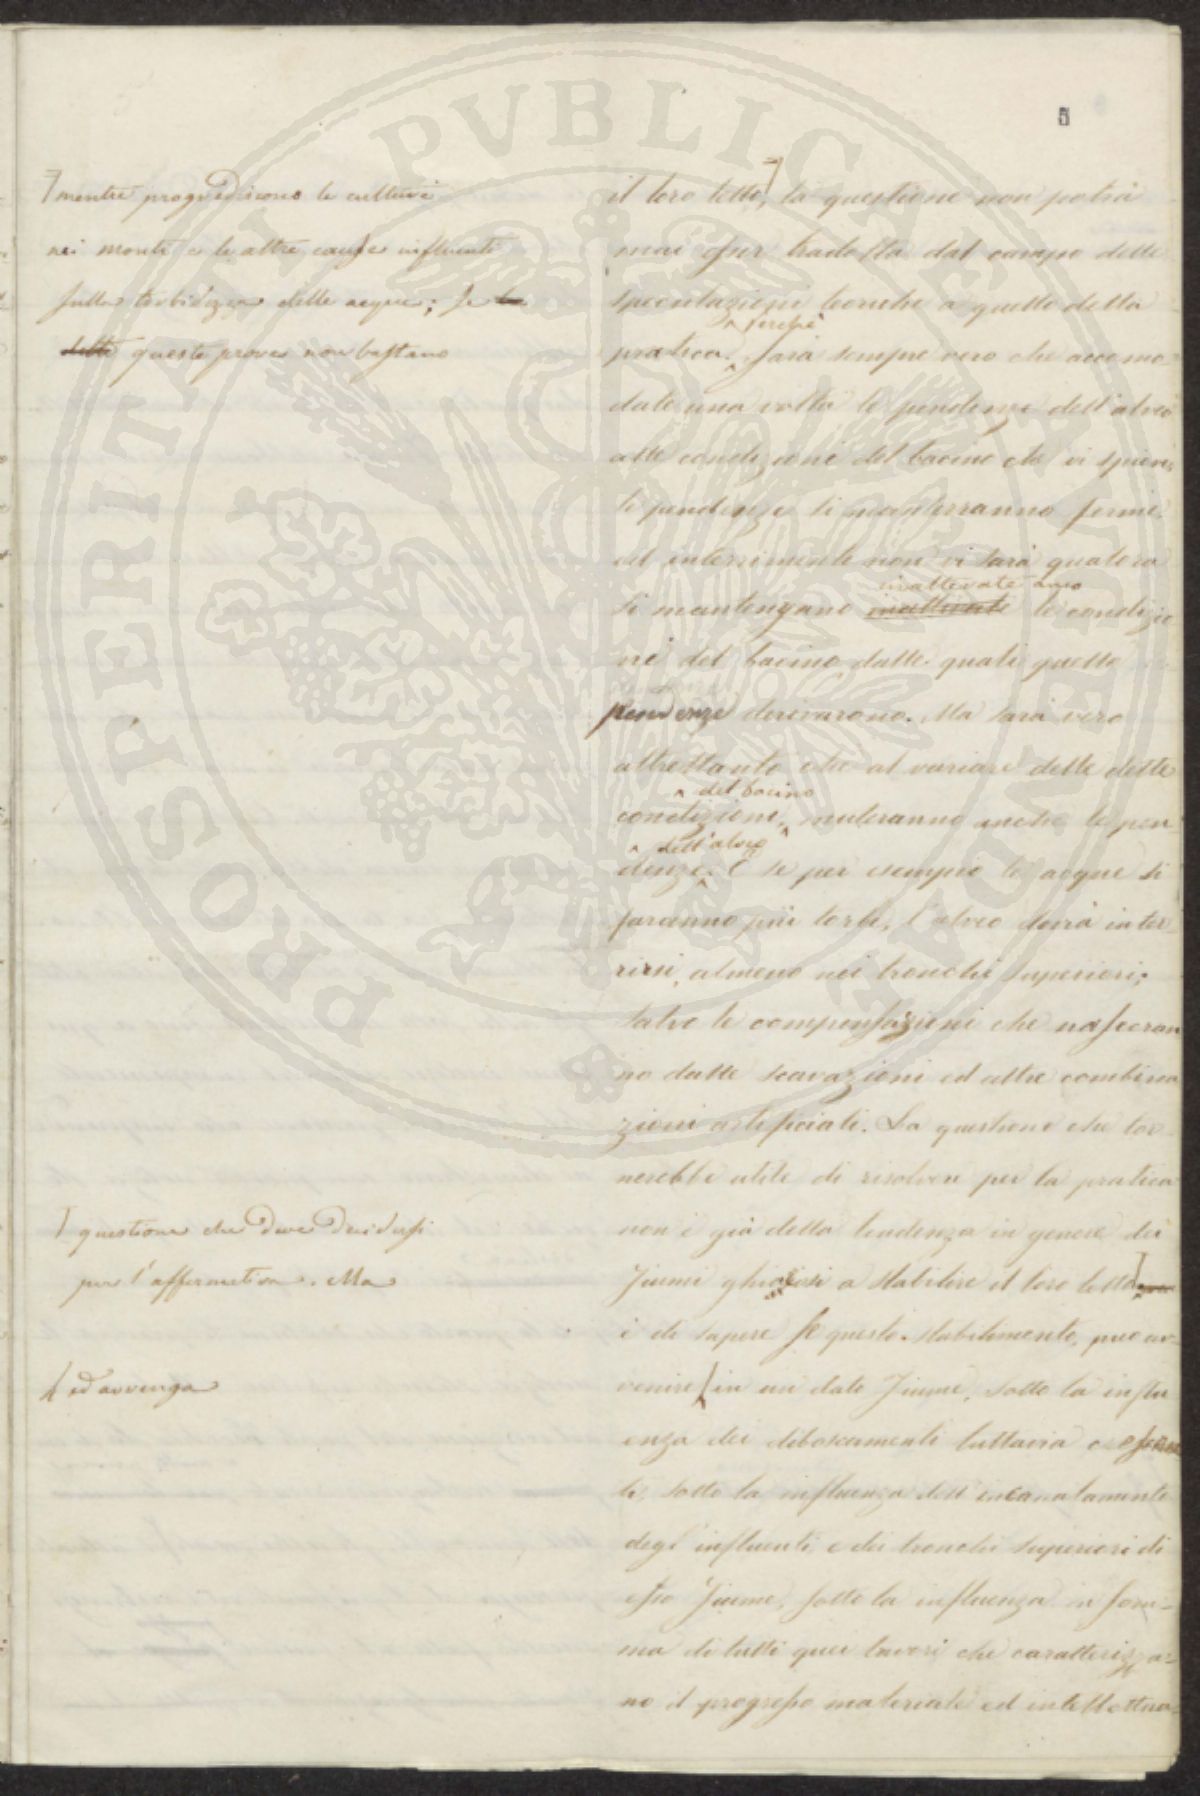 5
mentre progrediscono le culture
nei monti e le altre cause influenti
sulla torbidezza delle acque; se le
dette queste prove non bastano
il loro letto, la questione non potrà
mai esser tradotta dal campo delle
speculazioni teoriche a quello della
perchè
pratica. Sarà sempre vero che accomo-
date una volta le pendenze dell'alveo
alle condizioni del bacino che vi
le pendenze si manterranno ferme,
ed interrimento non vi sarà qualora
inalterate anco
si mantengano inalterate le condizio
ni del bacino dalle quali quelle
pendenze derivarono. Ma sarà vero
altrettanto che al variare delle dette
del bacino
condizioni, muteranno anche le pen
dell'alveo
denze. E se per esempio le acque si
faranno più torbe, l'alveo dovrà inter-
rirsi, almeno nei tronchi superiori;
salvo le compensazioni che nasceran
no dalle scavazioni ed altre combina
zioni artificiali. La questione che tor-
nerebbe utile di risolvere per la pratica
non è già della tendenza in genere dei
fiumi ghiaiosi a stabilire il loro letto
questione che deve decidersi
per l'affermativa. Ma
è di sapere se questo stabilimento, può av-
venire in un dato fiume, sotto la influ
ed avvenga
enza dei diboscamenti tuttavia crescen
ti, sotto la influenza dell'incanalamento
degl'influenti e dei tronchi superiori di
esso fiume, sotto la influenza in som-
ma di tutti quei lavori che caratterizza-
no il progresso materiale ed intellettua-
PROSPERITATI PVBLICAE AVGENDAE